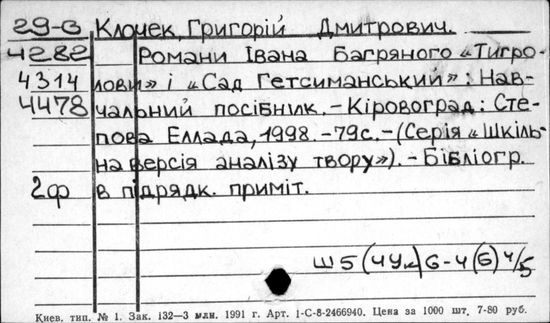 29-В Клочек, Григорій Дмитрович.
4282 Романи Івана Багряного «Тигро-
4314 лови» і «Сад Гетсиманський»: Нав-
4478 чальний посібник. - Кіровоград: Сте-
пова Еллада, 1998. - 79с. - (Серія «Шкіль-
на версія аналізу твору»). - Бібліогр.
2ф в підрядк. приміт.
Ш5(4Ук)6-4(Б)4/5
Киев. тип. № 1. Зак. 132—3 млн. 1991 г. Арт. 1-С-8-2466940. Цена за 1000 шт. 7-80 руб.